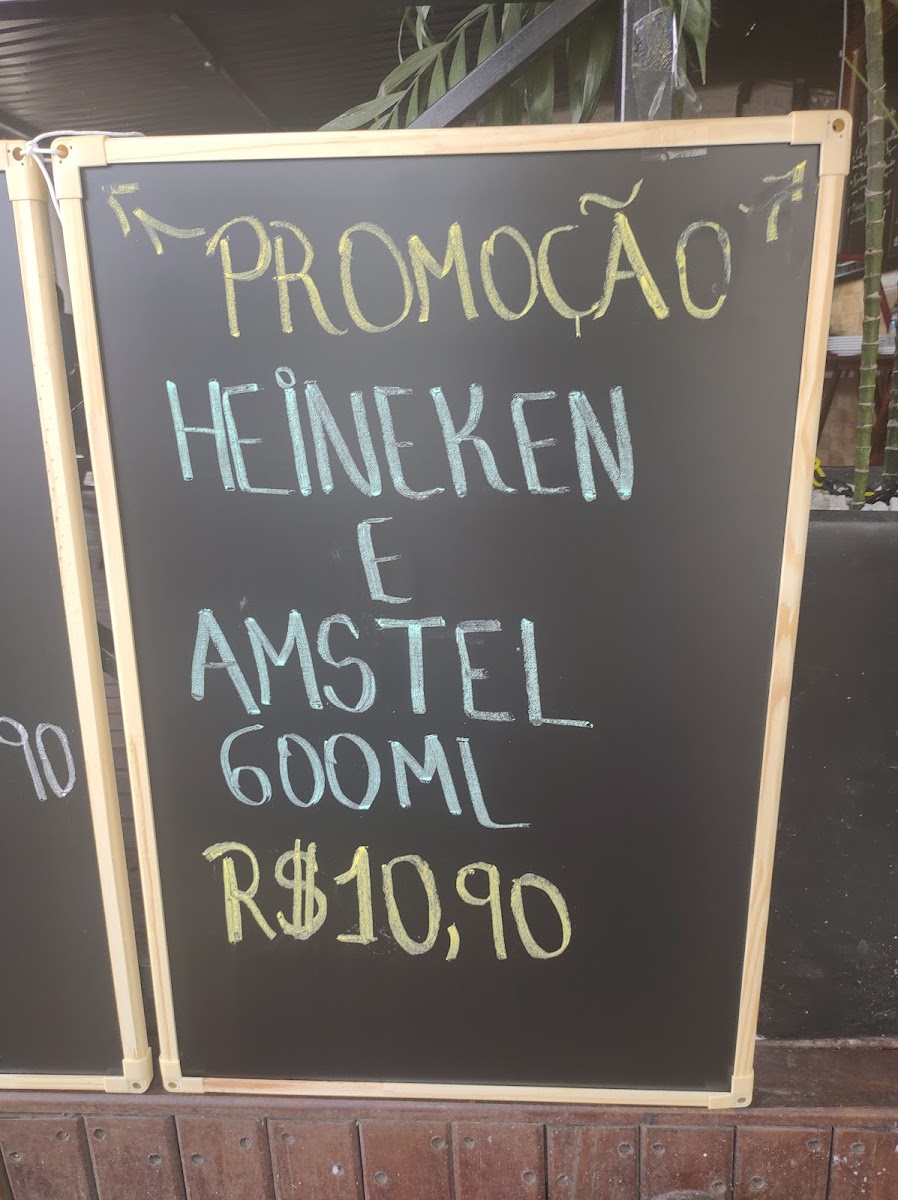 PROMOÇÃO
HEINEKEN
E
AMSTEL
600ML
R$10,90
90